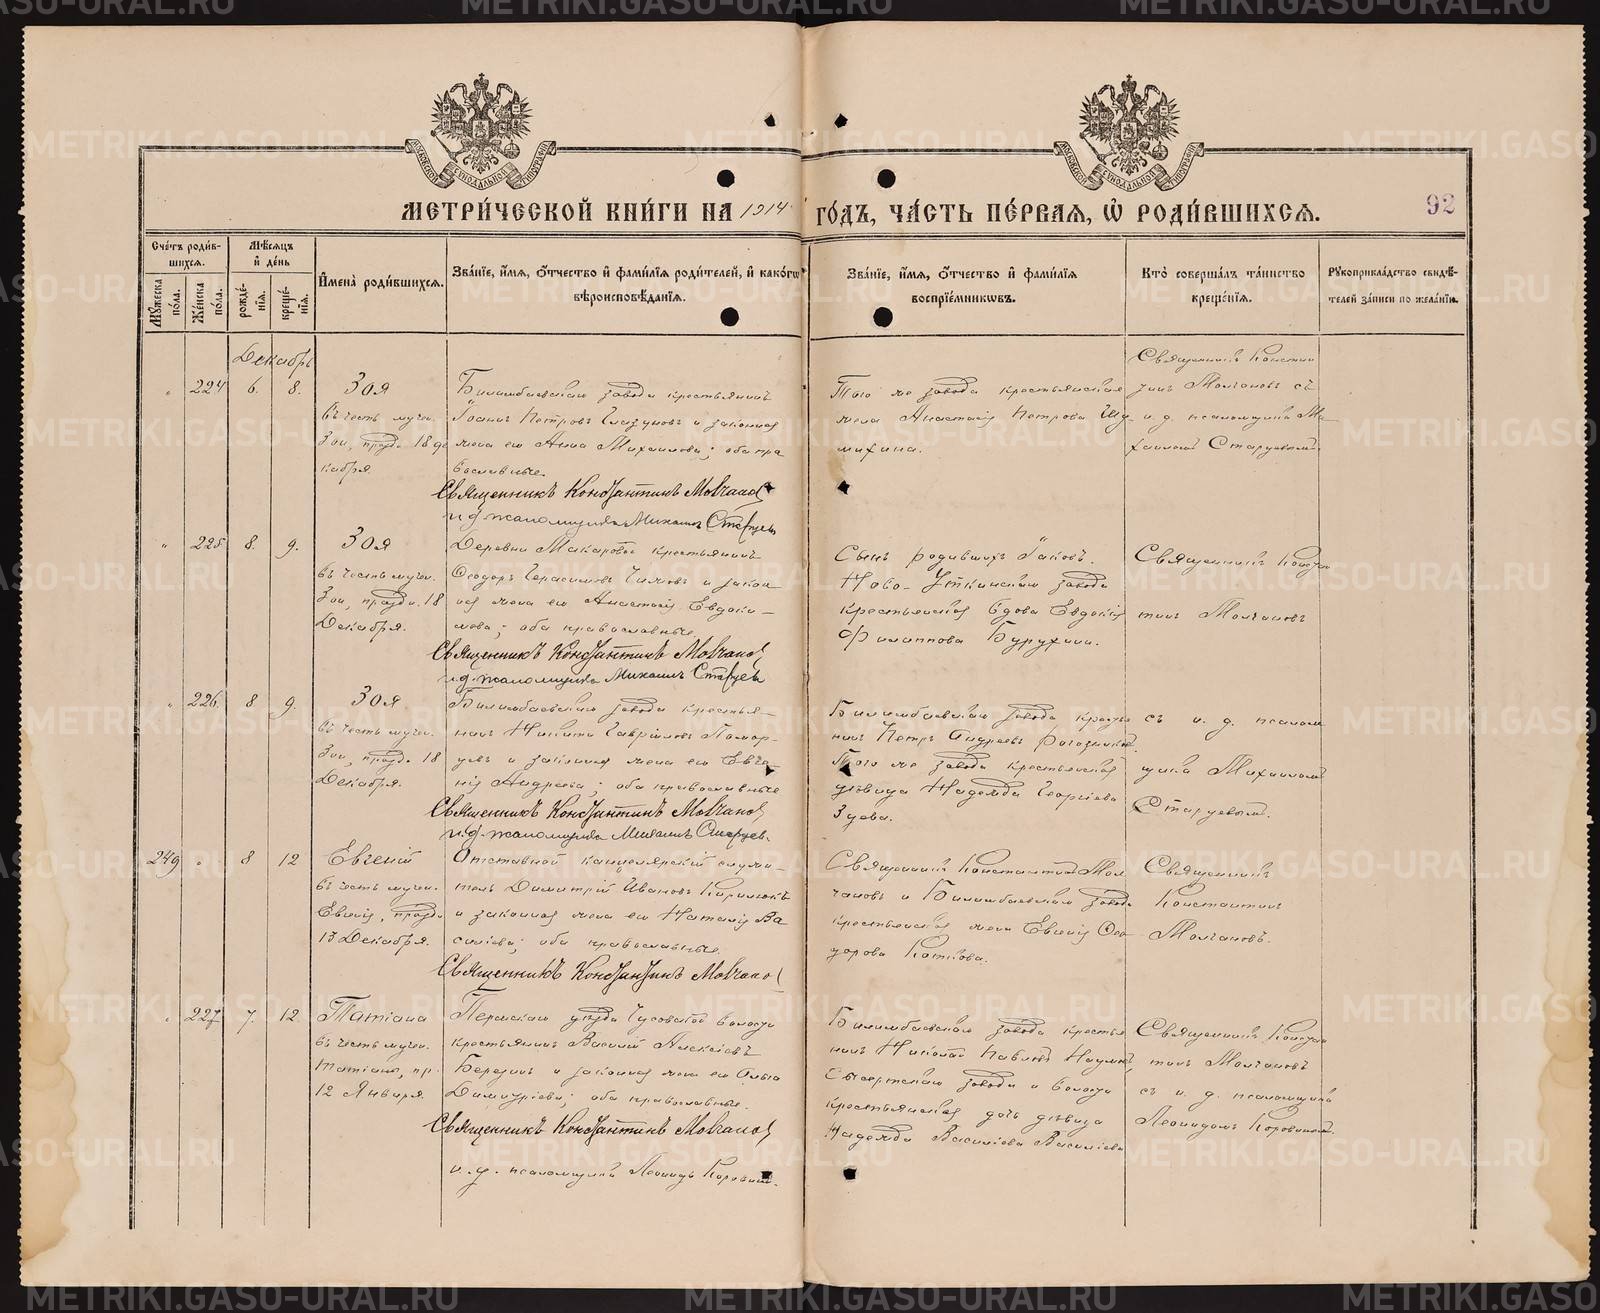 МЕТРИ́ЧЕСКОЙ КНИ́ГИ НА 1914 ГО́ДЪ, ЧА́СТЬ ПЕ́РВАЯ, Ѡ РОДИ́ВШИХСЯ.
92
Сче́тъ роди́вшихся.
Мѣ́сяцъ и де́нь
Му́жеска по́ла.
Же́нска по́ла.
рожде́нія.
креще́нія.
Имена̀ роди́вшихся.
Зва́ніе, и́мя, ѻ́тчество и фами́лія роди́телей, и како́гѡ вѣроисповѣ́данія.
Зва́ніе, и́мя, ѻ́тчество и фами́лія воспріе́мникѡвъ.
Кто̀ соверша́лъ та́инство креще́нія.
Рꙋкоприкла́дство свидѣ́телей за́писи по жела́нію.
Декабрь
224 6. 8.
Зоя
въ честь мучен.
Зои, праздн. 18 де
кабря.
Билимбаевскаго завода крестьянинъ
Іоаннъ Петровъ Глазуновъ и законная
жена его Анна Михаилова; оба пра
вославные.
Священникъ Константинъ Молчановъ
и. д. псаломщика Михаилъ Старцевъ
Того же завода крестьянская
жена Анастасія Петрова
Священникъ Констан
тинъ Молчановъ съ
и. д. псаломщика Ми
хаиломъ Старцевымъ.
225 8. 9.
Зоя
въ честь мучен.
Зои, праздн. 18
Декабря.
Деревни Макаровой крестьянинъ
Ѳеодоръ Герасимовъ и закон
ная жена его Анастасія Евдоки-
мова; оба православные.
Священникъ Константинъ Молчановъ
и. д. псаломщика Михаилъ Старцевъ
Сынъ родившихъ Іаковъ.
Ново-Уткинскаго завода
крестьянская вдова Евдокія
Филиппова Бурухина.
Священникъ Констан
тинъ Молчановъ
226. 8 9.
Зоя
въ честь мучен.
Зои, праздн. 18
Декабря.
Билимбаевскаго завода крестья-
нинъ Никита Гавріиловъ Помор-
цевъ и законная жена его Евге-
нія Андреева; оба православные
Священникъ Константинъ Молчановъ
и. д. псаломщика Михаилъ Старцевъ.
Билимбаевскаго завода крестья
нинъ Петръ Андреевъ Рогозинниковъ.
Того же завода крестьянская
дѣвица Надежда Георгіева
Зуева.
съ и. д. псалом
щика Михаиломъ
Старцевымъ.
249 8 12
Евгеній
въ честь мучен.
Евгенія, праздн.
13 Декабря.
Отставной канцелярскій служи-
тель Димитрій Ивановъ Кирилюкъ
и законная жена его Наталія Ва
силіева; оба православные.
Священникъ Константинъ Молчановъ
Священникъ Константинъ Мол
чановъ и Билимбаевскаго завода
крестьянская жена Евгенія Ѳео
дорова Коткова.
Священникъ
Константинъ
Молчановъ.
227 7. 12
Татіана
въ честь мучен.
Татіаны, пр.
12 Января.
Пермскаго уѣзда Чусовской волости
крестьянинъ Василій Алексіевъ
Березинъ и законная жена его Ольга
Димитріева; оба православные.
Священникъ Константинъ Молчановъ
и. д. псаломщика Леонидъ Коровинъ.
Билимбаевскаго завода крестья
нинъ Николай Павловъ Наумовъ,
Сысертскаго завода и волости
крестьянская дочь дѣвица
Надежда Василіева Василіева
Священникъ Констан
тинъ Молчановъ
съ и. д. псаломщика
Леонидомъ Коровинымъ.
METRIKI.GASO-URAL.RU